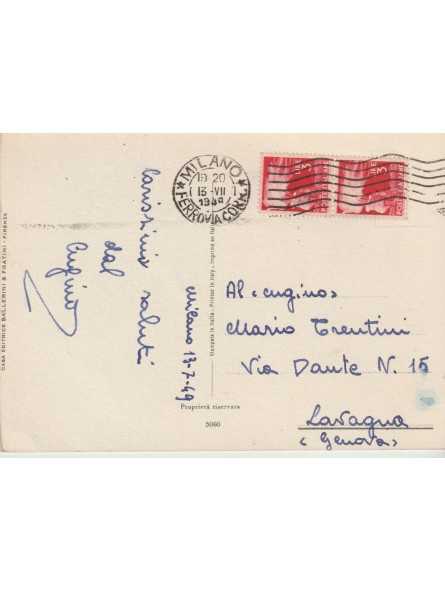 MILANO
19 20
13 - VII
1949
FERROVIA CORR.
LIRE
3
LIRE
3
Carissimi saluti
dal
Cugino
Milano 13-7-49
Al «cugino»
Mario Trentini
Via Dante N. 15
Lavagna
«Genova»
Proprietà riservata
5060
Stampata in Italia - Printed in Italy - Imprimé en Italie
CASA EDITRICE BALLERINI & FRATINI - FIRENZE